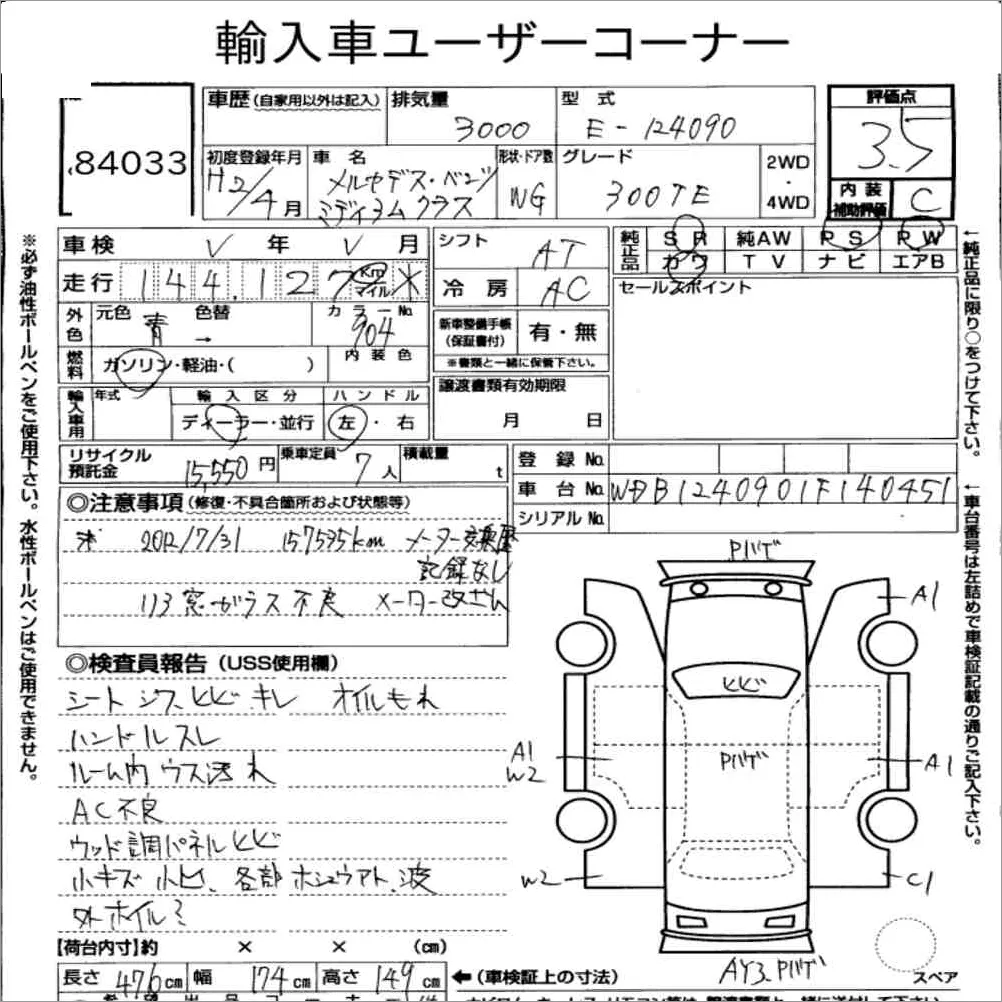 輸入車ユーザーコーナー
84033
車歴(自家用以外は記入)
排気量
3000
型式
E-124090
評価点
3.5
内装補助評価
C
初度登録年月
H2/4月
車名
メルセデス・ベンツ
ミディアムクラス
形状・ドア数
WG
グレード
300TE
2WD
・
4WD
車検 V年 V月
シフト
AT
純正品
SR 純AW PS PW
カワ TV ナビ エアB
走行 144,127 Km マイル *
冷房
AC
セールスポイント
外色
元色 青 色替 →
カラーNo.
904
新車整備手帳
(保証書付)
有・無
※書類と一緒に保管下さい。
燃料
ガソリン・軽油・( )
内装色
輸入車用
年式
輸入区分
ディーラー・並行
ハンドル
左・右
譲渡書類有効期限
月 日
リサイクル預託金
15,550円
乗車定員
7人
積載量
t
登録No.
車台No.
WDB1240901F140451
シリアルNo.
◎注意事項(修復・不具合箇所および状態等)
* 2012/7/31 157535km メーター交換歴
記録なし
リヨ窓ガラス不良 メーター改ざん
◎検査員報告(USS使用欄)
シート シワ、ヒビ キレ オイルもれ
ハンドルスレ
ルーム内 ウス汚れ
AC不良
ウッド調パネルヒビ
小キズ 小ヒビ、各部 ホシュウアト、波
外ホイルミ
【荷台内寸】約 × × (cm)
長さ 476cm 幅 174cm 高さ 149cm
←(車検証上の寸法)
Pハゲ
A1
ヒビ
Pハゲ
A1
W2
A1
W2
C1
AY3、Pハゲ
スペア
※必ず油性ボールペンをご使用下さい。水性ボールペンはご使用できません。
←純正品に限り○をつけて下さい。
←車台番号は左詰めで車検証記載の通りご記入下さい。